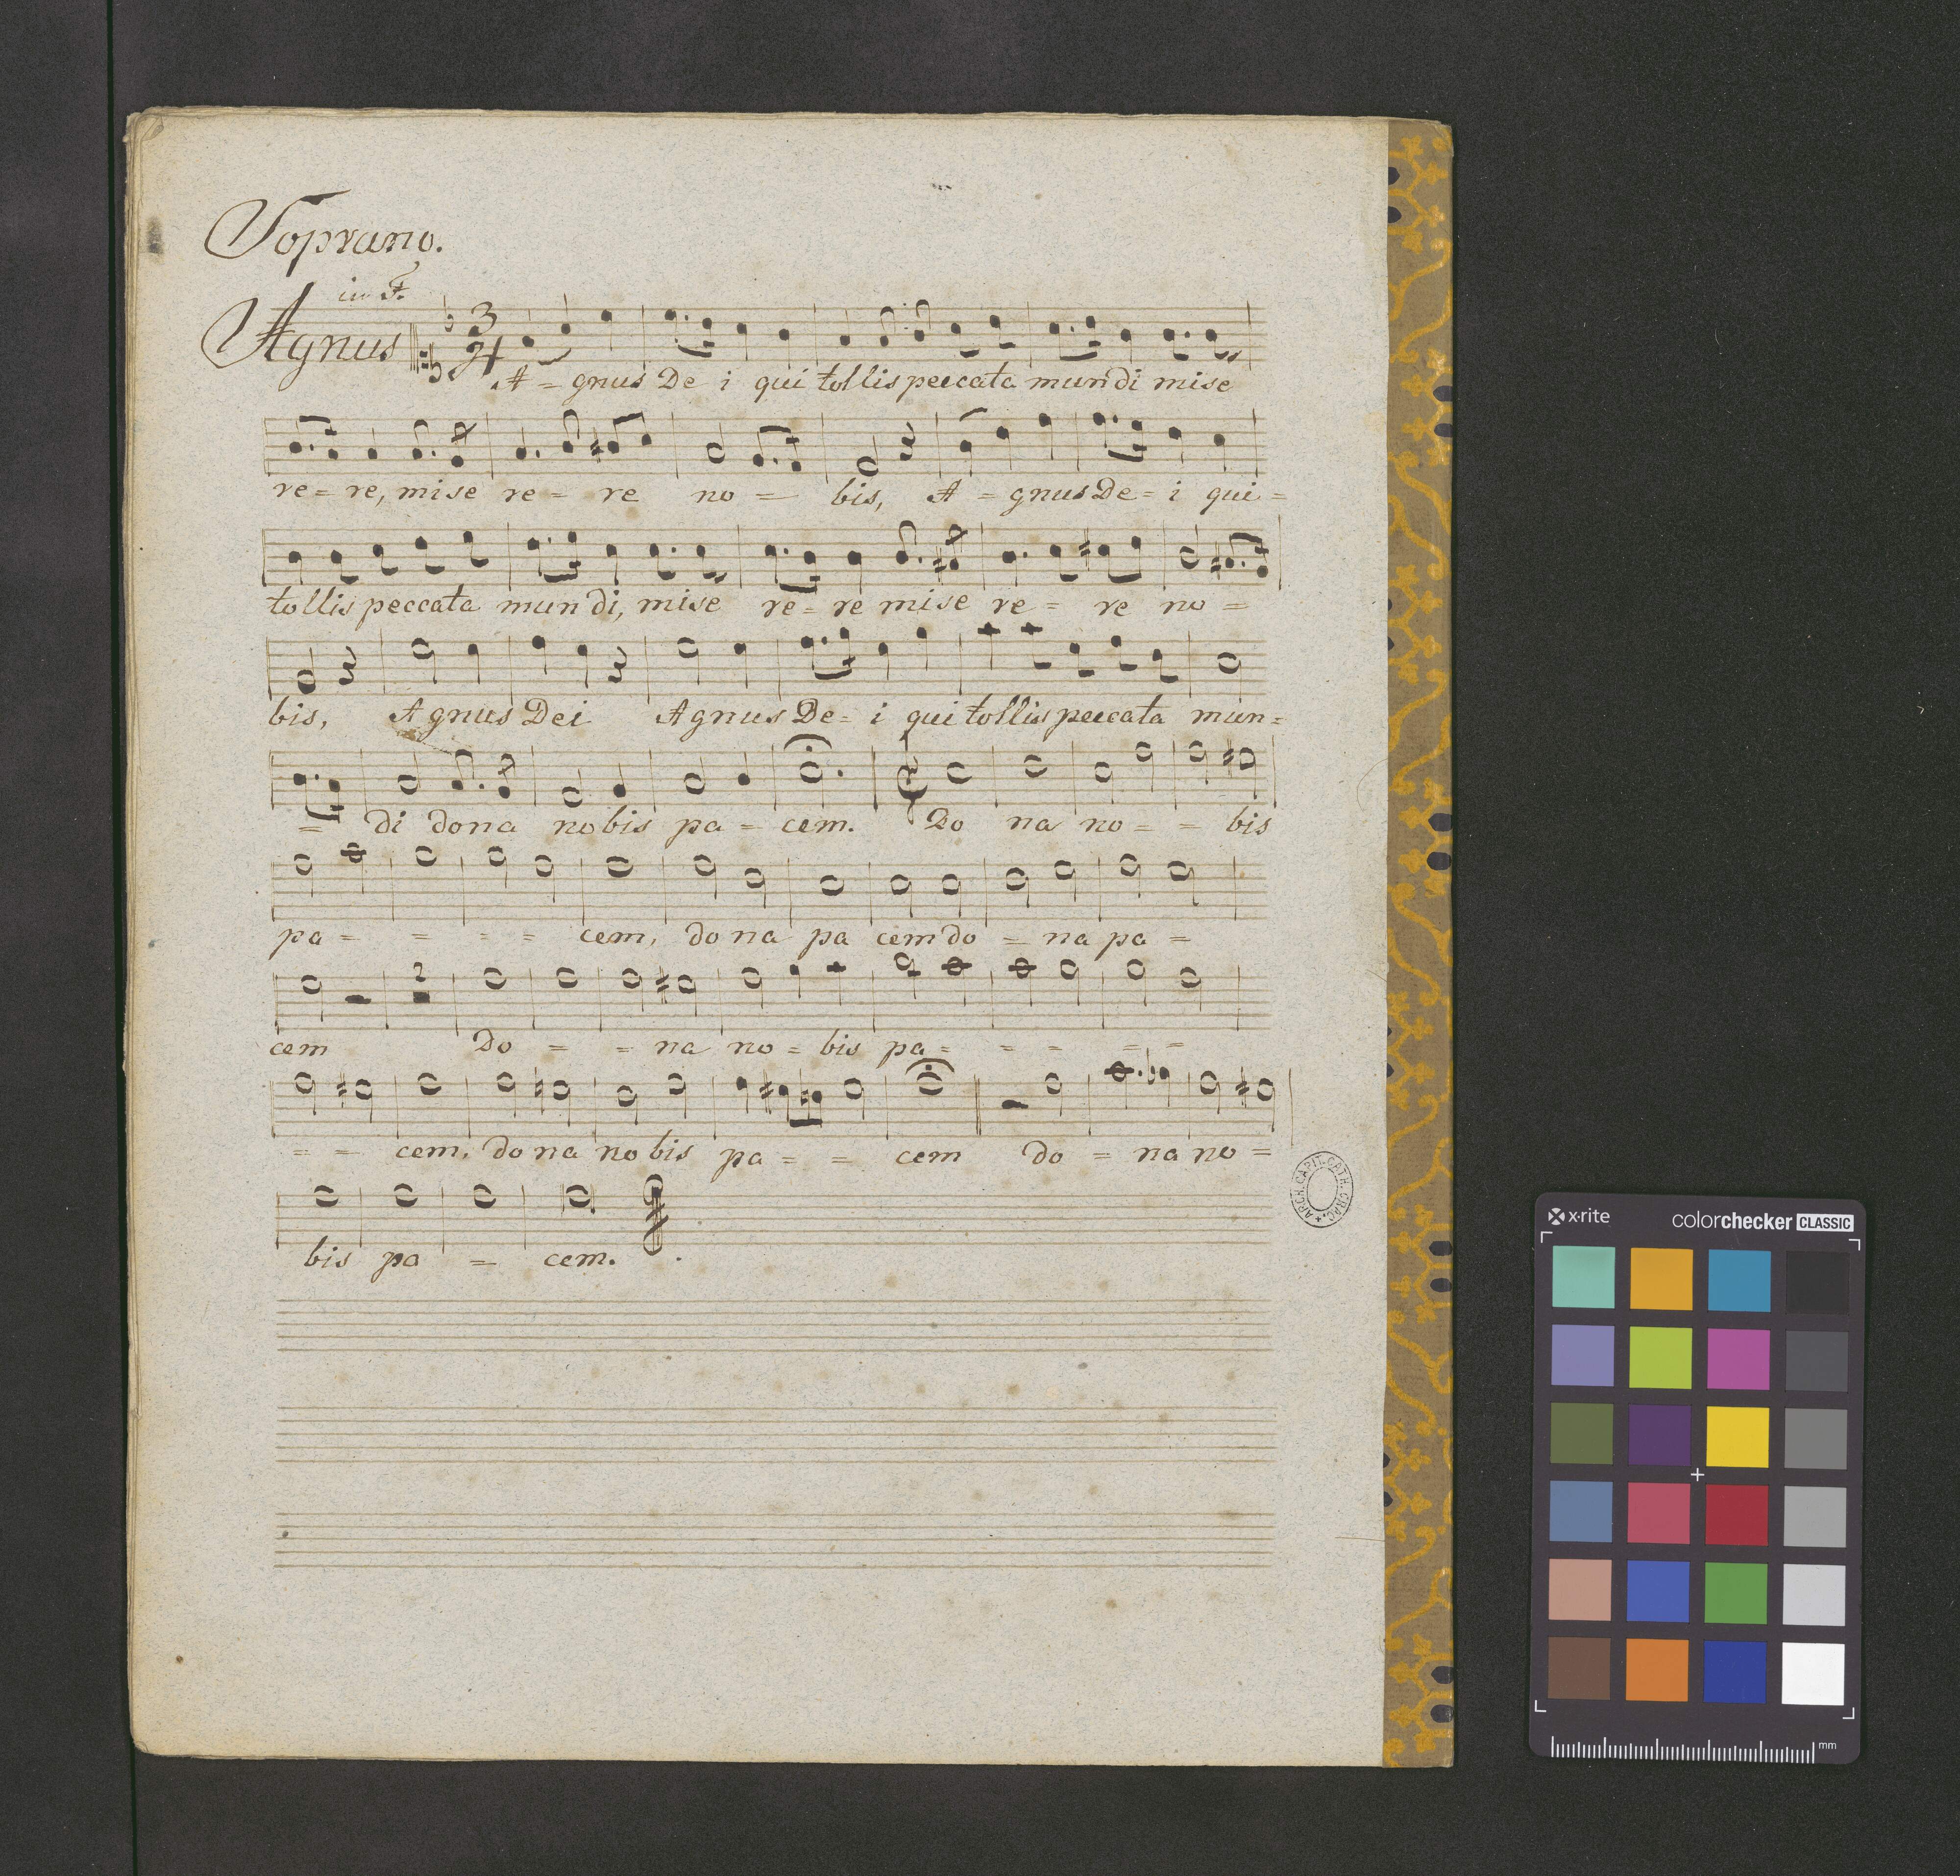 Soprano.
in F.
Agnus
3
4
A = gnus De i qui tollis peccata mundi mise
re = re, mise re = re no = bis, A = gnus De = i qui =
tollis peccata mundi, mise re = re mise re = re no =
bis, Agnus Dei Agnus De = i qui tollis peccata mun =
= di dona nobis pa = cem. Do na no = = bis
pa = = = = cem, dona pa cem do = na pa =
2
cem Do = = na no = bis pa = = = = =
= = cem, dona nobis pa = = cem do = na no =
bis pa = cem.
ARCH. CAPIT. CATH. CRAC. *
x-rite
colorchecker CLASSIC
mm